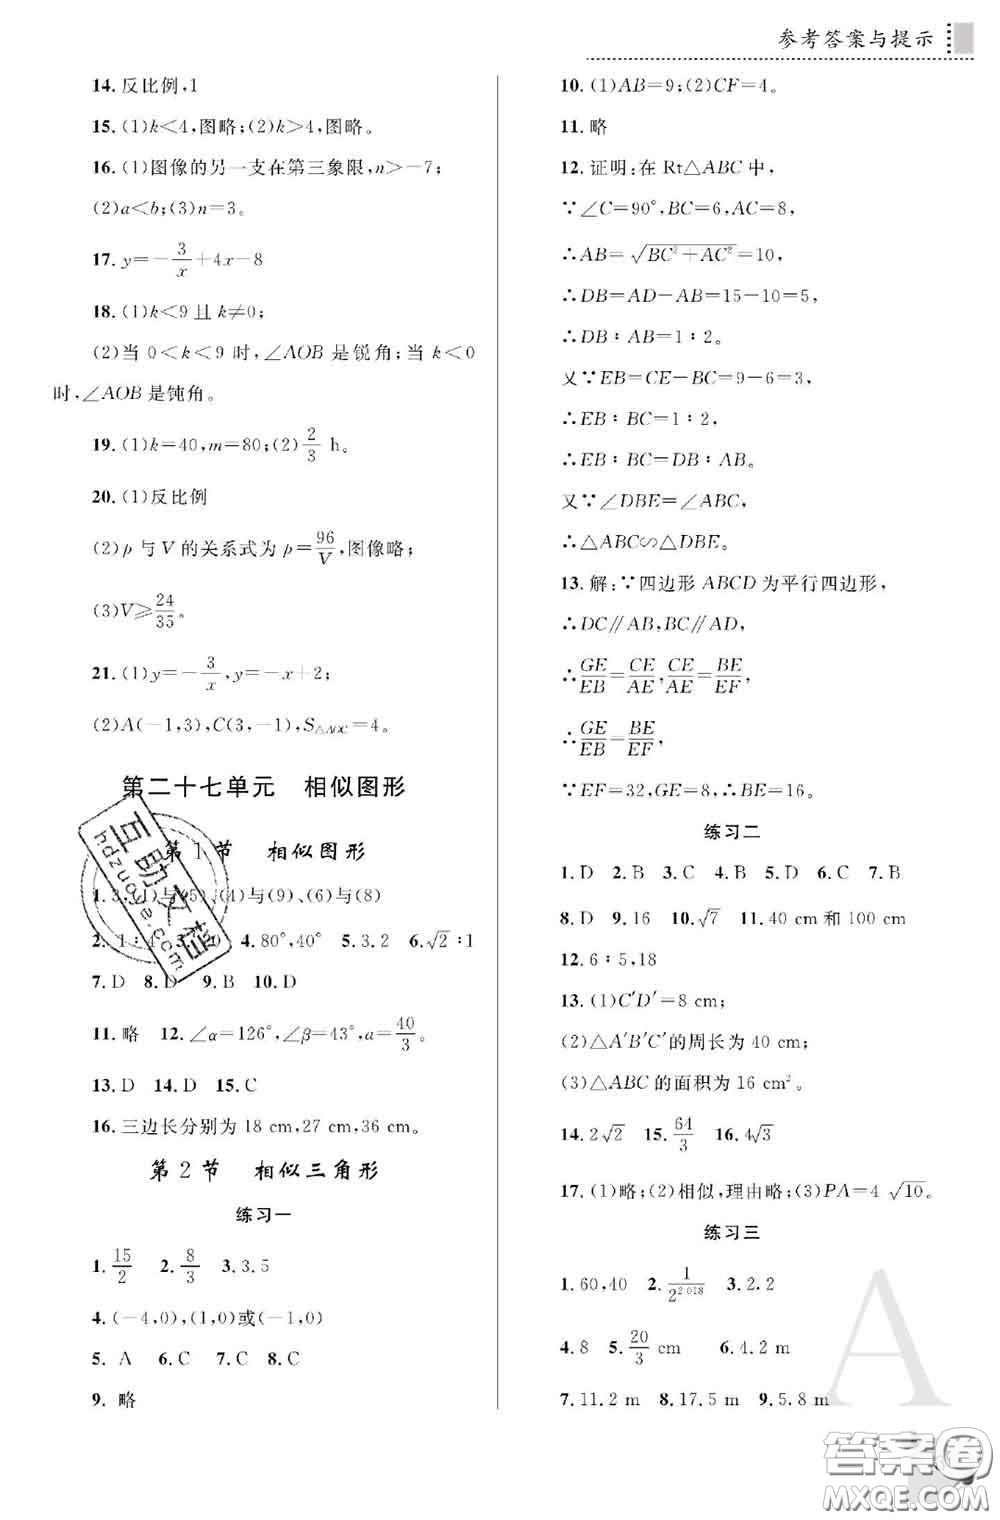 参考答案与提示
14.反比例,1
15.(1)k<4,图略;(2)k>4,图略。
16.(1)图像的另一支在第三象限,n>-7;
(2)a<b;(3)n=3。
17.y=-3/x+4x-8
18.(1)k<9且k≠0;
(2)当0<k<9时,∠AOB是锐角;当k<0
时,∠AOB是钝角。
19.(1)k=40,m=80;(2)2/3 h。
20.(1)反比例
(2)p与V的关系式为p=96/V,图像略;
(3)V⩾24/35。
21.(1)y=-3/x,y=-x+2;
(2)A(-1,3),C(3,-1),S△AOC=4。
第二十七单元 相似图形
第1节 相似图形
1.3,(1)与(5)、(4)与(9)、(6)与(8)
2.1:4 3. 4.80°,40° 5.3.2 6.√2:1
7.D 8.D 9.B 10.D
11.略 12.∠α=126°,∠β=43°,a=40/3。
13.D 14.D 15.C
16.三边长分别为18 cm,27 cm,36 cm。
第2节 相似三角形
练习一
1.15/2 2.8/3 3.3.5
4.(-4,0),(1,0)或(-1,0)
5.A 6.C 7.C 8.C
9.略
10.(1)AB=9;(2)CF=4。
11.略
12.证明:在Rt△ABC中,
∵∠C=90°,BC=6,AC=8,
∴AB=√(BC²+AC²)=10,
∴DB=AD-AB=15-10=5,
∴DB:AB=1:2。
又∵EB=CE-BC=9-6=3,
∴EB:BC=1:2,
∴EB:BC=DB:AB。
又∵∠DBE=∠ABC,
∴△ABC∽△DBE。
13.解:∵四边形ABCD为平行四边形,
∴DC∥AB,BC∥AD,
∴GE/EB=CE/AE,CE/AE=BE/EF,
∴GE/EB=BE/EF,
∵EF=32,GE=8,∴BE=16。
练习二
1.D 2.B 3.C 4.B 5.D 6.C 7.B
8.D 9.16 10.√7 11.40 cm和100 cm
12.6:5,18
13.(1)C′D′=8 cm;
(2)△A′B′C′的周长为40 cm;
(3)△ABC的面积为16 cm²。
14.2√2 15.64/3 16.4√3
17.(1)略;(2)相似,理由略;(3)PA=4√10。
练习三
1.60,40 2.1/2^2018 3.2.2
4.8 5.20/3 cm 6.4.2 m
7.11.2 m 8.17.5 m 9.5.8 m
A
互助文档
hdzuoye.com
答案圈
MXQE.COM